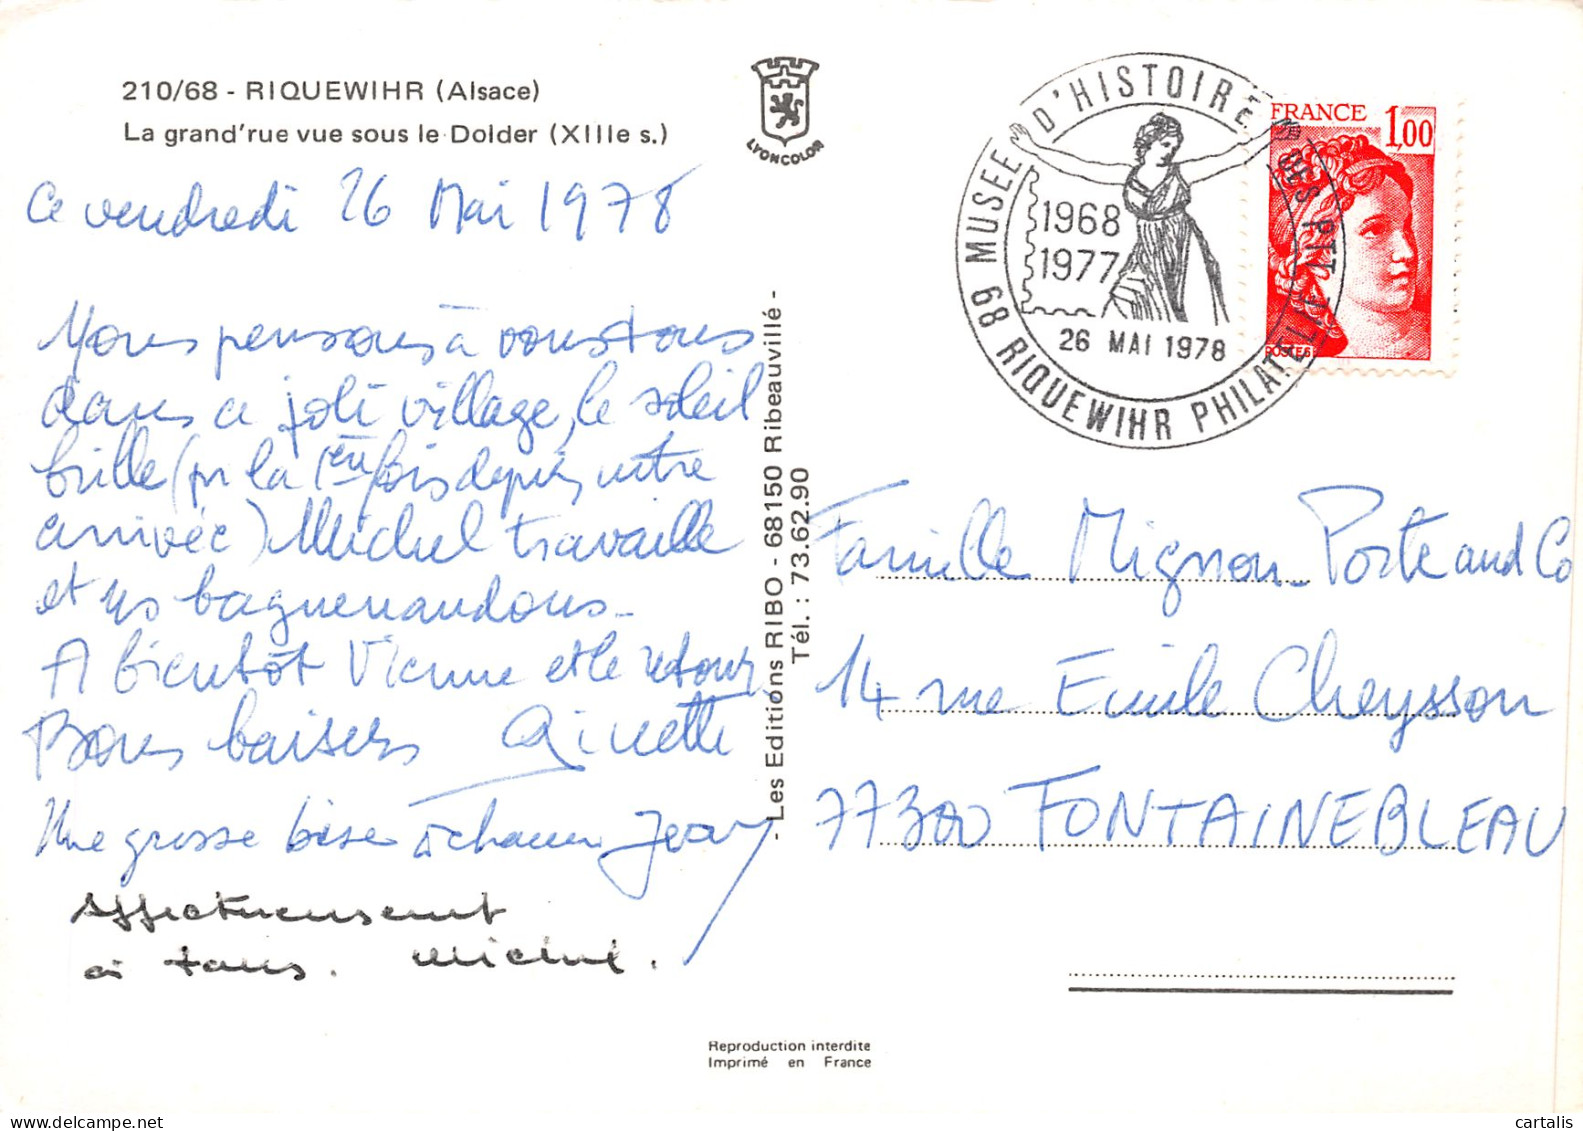 210/68 - RIQUEWIHR (Alsace)
La grand'rue vue sous le Dolder (XIIIe s.)
LYONCOLOR
Ce vendredi 26 Mai 1978
Nous pensons à vous tous
dans ce joli village, le soleil
brille (pr la 1ère fois depuis notre
arrivée) Michel travaille
et ns baguenaudons -
A bientôt Vienne et le retour
Bons baisers Ginette
Une grosse bise à chacun Jean
Affectueusement
à tous. Michel.
- Les Editions RIBO - 68150 Ribeauvillé -
Tél. : 73.62.90
MUSEE D'HISTOIRE DES PTT
68 RIQUEWIHR PHILATELIE
1968
1977
26 MAI 1978
FRANCE 1,00
POSTES
Famille Mignon-Porte and Co
14 rue Emile Cheysson
77300 FONTAINEBLEAU
Reproduction interdite
Imprimé en France
cartalis